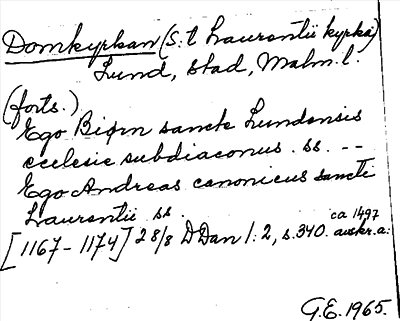 Domkyrkan (S:t Laurentii kyrka)
Lund, stad, Malm. l.
(forts.)
Ego Biørn sancte Lundensis
ecclesie subdiaconus. ss. --
Ego Andreas canonicus sancti
Laurentii ss.
[1167-1174] 28/8 DDan 1:2, s.340. ca 1497 avskr. a:
G.E. 1965.